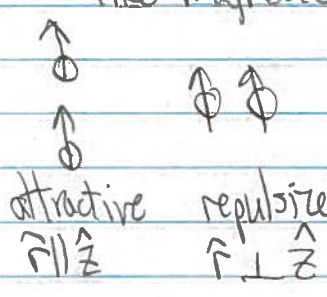 attractive repulsize
r̂ ∥ ẑ r̂ ⊥ ẑ